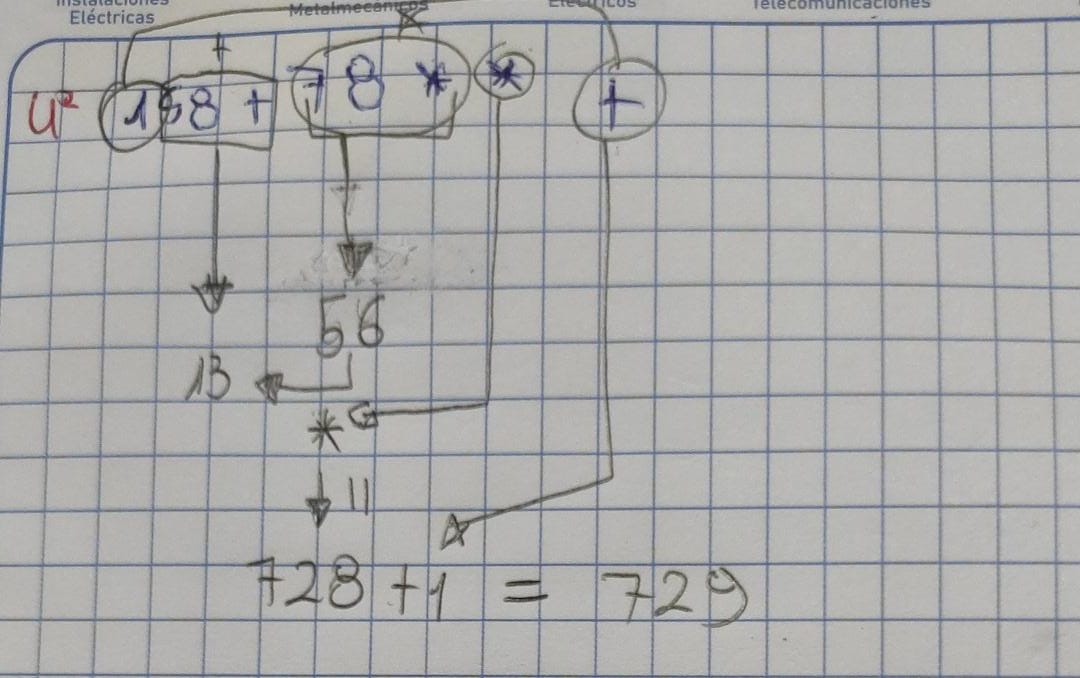 Instalaciones Eléctricas Metalmecánicos Eléctricos Telecomunicaciones
+ *
4º 1 5 8 + 7 8 * * +
56
13
*
11
728 + 1 = 729